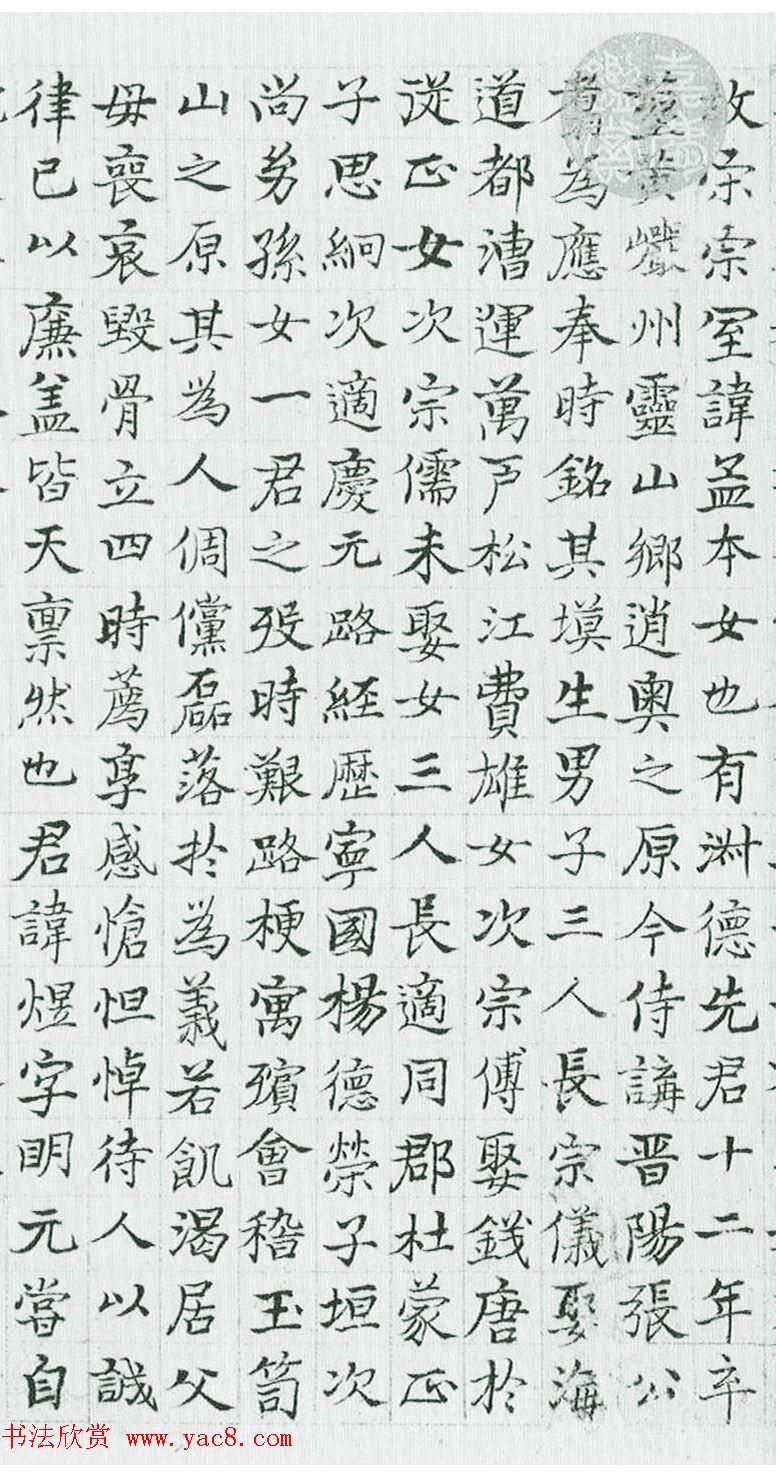 故宋宗室諱孟本女也有淑德先君十二年卒
葬黄巖州靈山鄉逍奥之原今侍講晋陽張公
翥為應奉時銘其塻生男子三人長宗儀娶海
道都漕運萬戶松江費雄女次宗傅娶錢唐於
從正女次宗儒未娶女三人長適同郡杜蒙正
子思絅次適慶元路經歷寧國楊德榮子垣次
尚幼孫女一君之歿時艱路梗寓殯會稽玉笥
山之原其為人倜儻磊落於為義若飢渴居父
毋喪哀毀骨立四時薦享感愴怛悼待人以誠
律己以廉盖皆天禀然也君諱煜字明元嘗自
书法欣赏 www.yac8.com